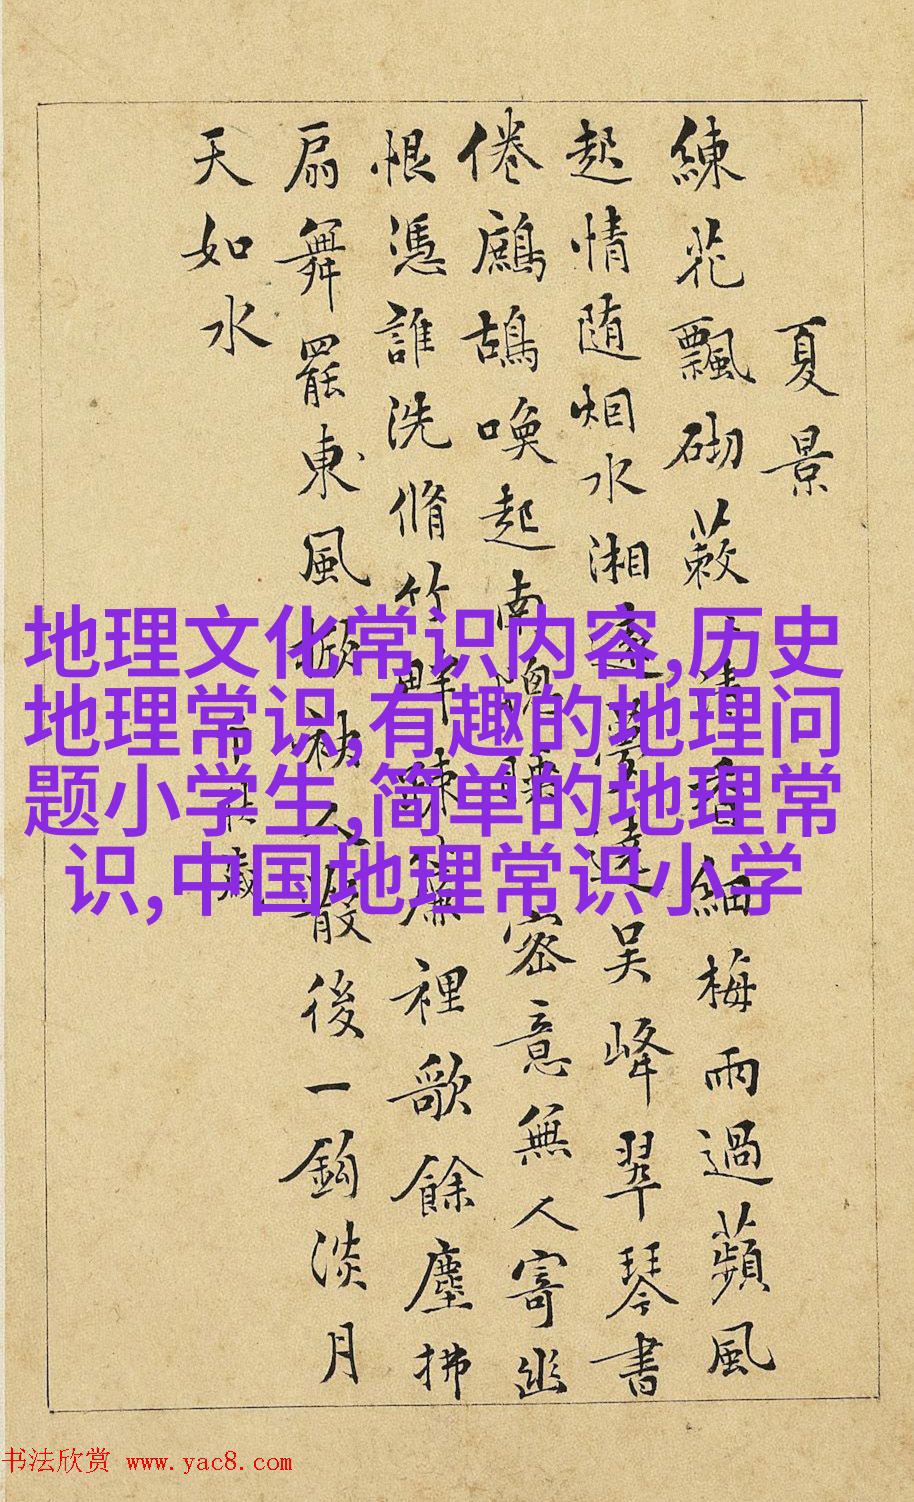 夏景
練花飄砌蔌清香細梅雨過蘋風
起情随烟水湘逐夢遶吳峰翠琴書
倦鷓鴣喚起南睡密意無人寄幽
恨憑誰洗脩竹畔疎簾裡歌餘塵拂
扇舞罷東風掀袂人散後一鈎淡月
天如水
右千秋歲
地理文化常识内容,历史
地理常识,有趣的地理问
题小学生,简单的地理常
识,中国地理常识小学
书法欣赏 www.yac8.com